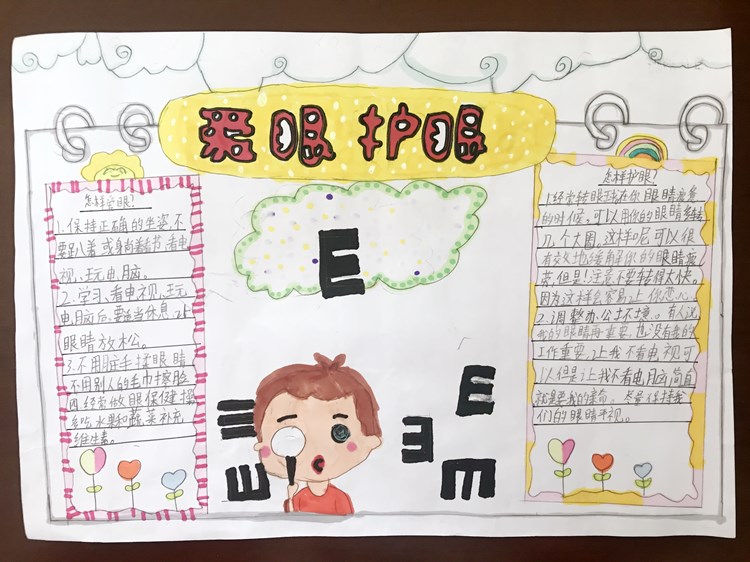 爱眼护眼
怎样护眼?
1.保持正确的坐姿,不
要趴着或身尚着看书、看电
视、玩电脑。
2.学习、看电视、玩
电脑后,要适当休息,让
眼睛放松。
3.不用脏手揉眼睛
不用别人的毛巾擦脸
四经常做眼保健操
多吃水果和蔬菜补充
维生素。
E
E
E
E
E
E
怎样护眼?
1.经常转眼球在你眼睛疲惫
的时候。可以用你的眼睛多转
几个大圆。这样呢可以很
有效地缓解你的眼睛疲
劳,但是!注意不要转得太快。
因为这样会容易让你恶心
2.调整办公环境。有人说
我的眼睛再重要,也没有我的
工作重要,让我不看电视可
以但是让我不看电脑简直
就是要我的命。尽量保持我
们的眼睛平视。